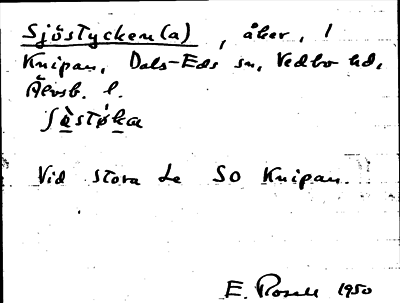 Sjöstycken(a), åker, 1
Knipan, Dals-Eds sn, Vedbo hd,
Älvsb. l.
ʃœ̀støka
Vid stora Le SO Knipan.
E. Rosell 1950